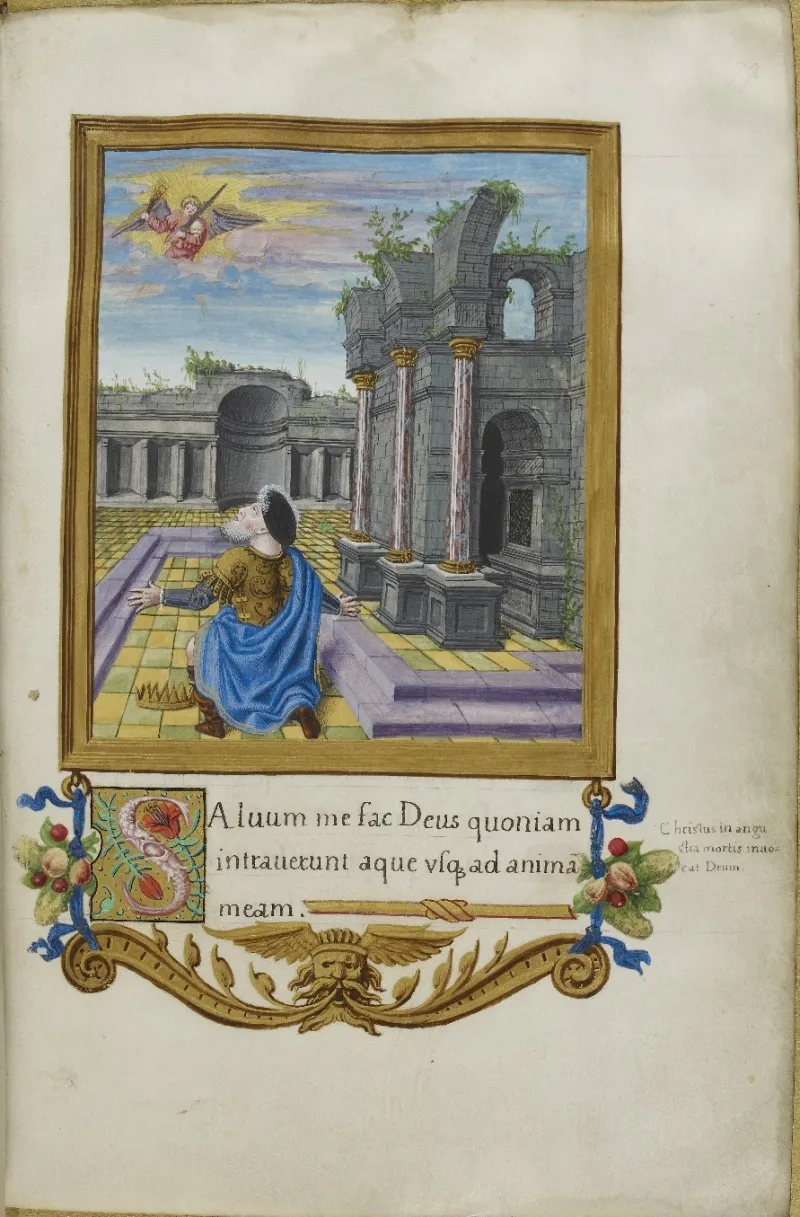 Saluum me fac Deus quoniam
intrauerunt aque vsq, ad animā
meam.
Christus in angu
stia mortis inuo-
cat Deum.